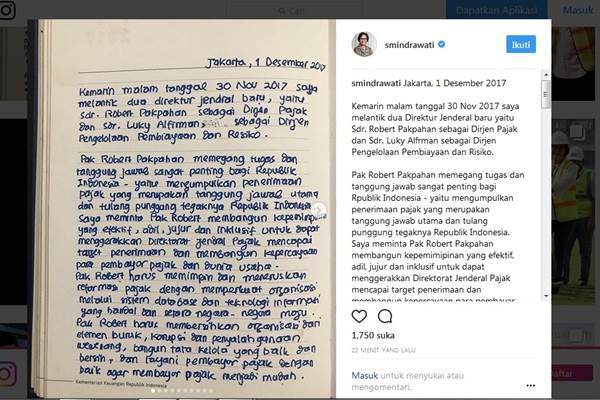 Cari
Dapatkan Aplikasi
Masuk
Jakarta, 1 Desember 2017
Kemarin malam tanggal 30 Nov 2017 saya
melantik dua direktur jendral baru, yaitu
sdr. Robert Pakpahan sebagai Dirjen Pajak
dan sdr. Luky Alfirman sebagai Dirjen
Pengelolaan Pembiayaan dan Risiko.
Pak Robert Pakpahan memegang tugas dan
tanggung jawab sangat penting bagi Republik
Indonesia - yaitu mengumpulkan penerimaan
pajak yang merupakan tanggung jawab utama
dan tulang punggung tegaknya Republik Indonesia
Saya meminta Pak Robert membangun kepemimpinan
yang efektif, adil, jujur dan inklusif untuk dapat
menggerakkan Direktorat Jendral Pajak mencapai
target penerimaan dan membangun kepercayaan
para pembayar pajak dan dunia usaha.
Pak Robert harus memimpin dan meneruskan
reformasi pajak dengan memperkuat organisasi
melalui sistem database dan teknologi informasi
yang handal dan setara negara-negara maju.
Pak Robert harus membersihkan organisasi dari
elemen buruk, korupsi dan penyalahgunaan
wewenang, bangun tata kelola yang baik dan
bersih, dan layani pembayar pajak dengan
baik agar membayar pajak menjadi mudah.
Kementerian Keuangan Republik Indonesia
smindrawati
Ikuti
smindrawati Jakarta, 1 Desember 2017
Kemarin malam tanggal 30 Nov 2017 saya
melantik dua Direktur Jenderal baru yaitu
Sdr. Robert Pakpahan sebagai Dirjen Pajak
dan Sdr. Luky Alfrman sebagai Dirjen
Pengelolaan Pembiayaan dan Risiko.
Pak Robert Pakpahan memegang tugas dan
tanggung jawab sangat penting bagi
Rpublik Indonesia - yaitu mengumpulkan
penerimaan pajak yang merupakan
tanggung jawab utama dan tulang
punggung tegaknya Republik Indonesia.
Saya meminta Pak Robert Pakpahan
membangun kepemimipinan yang efektif,
adil, jujur dan inklusif untuk dapat
menggerakkan Direktorat Jenderal Pajak
mencapai target penerimaan dan
membangun kepercayaan para pembayar
1,750 suka
22 MENIT YANG LALU
Masuk untuk menyukai atau
mengomentari.
Daftar